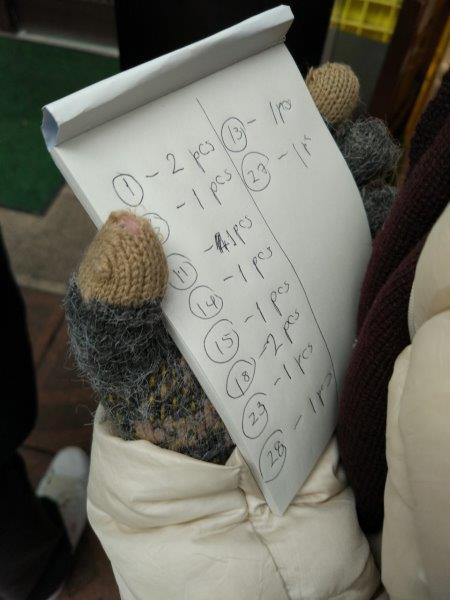 1 - 2 pcs
- 1 pcs
11 - 1 pcs
14 - 1 pcs
15 - 1 pcs
18 - 2 pcs
23 - 1 pcs
28 - 1 pcs
13 - 1 pcs
27 - 1 pc